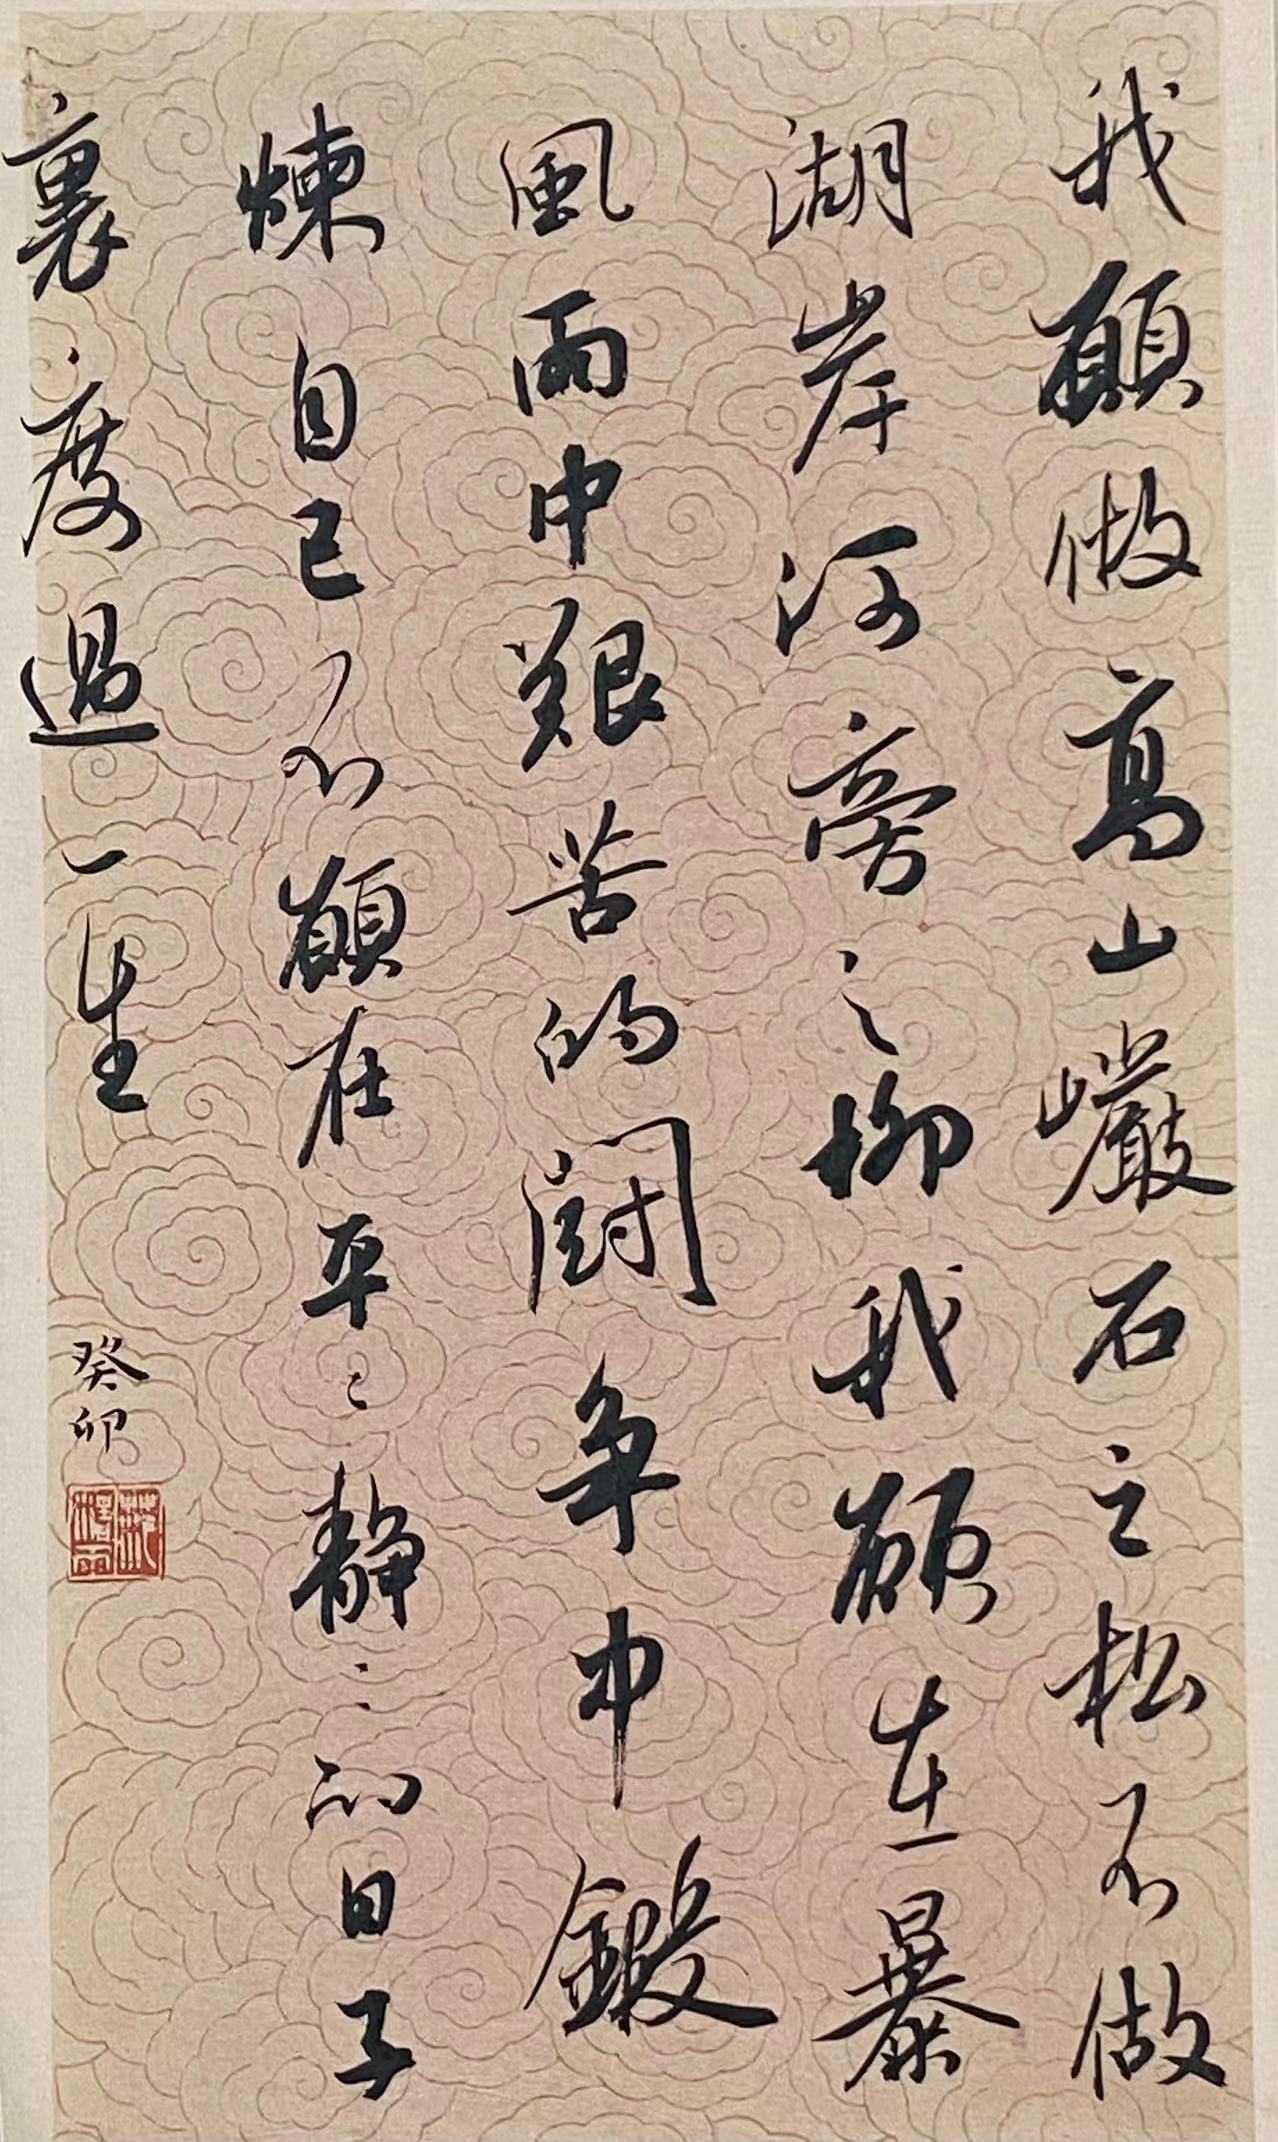 我願做高山巖石之松不做
湖岸河旁之柳我願在暴
風雨中艱苦的鬪争中鍛
煉自己不願在平〻静〻的日子
裏度過一生
癸卯